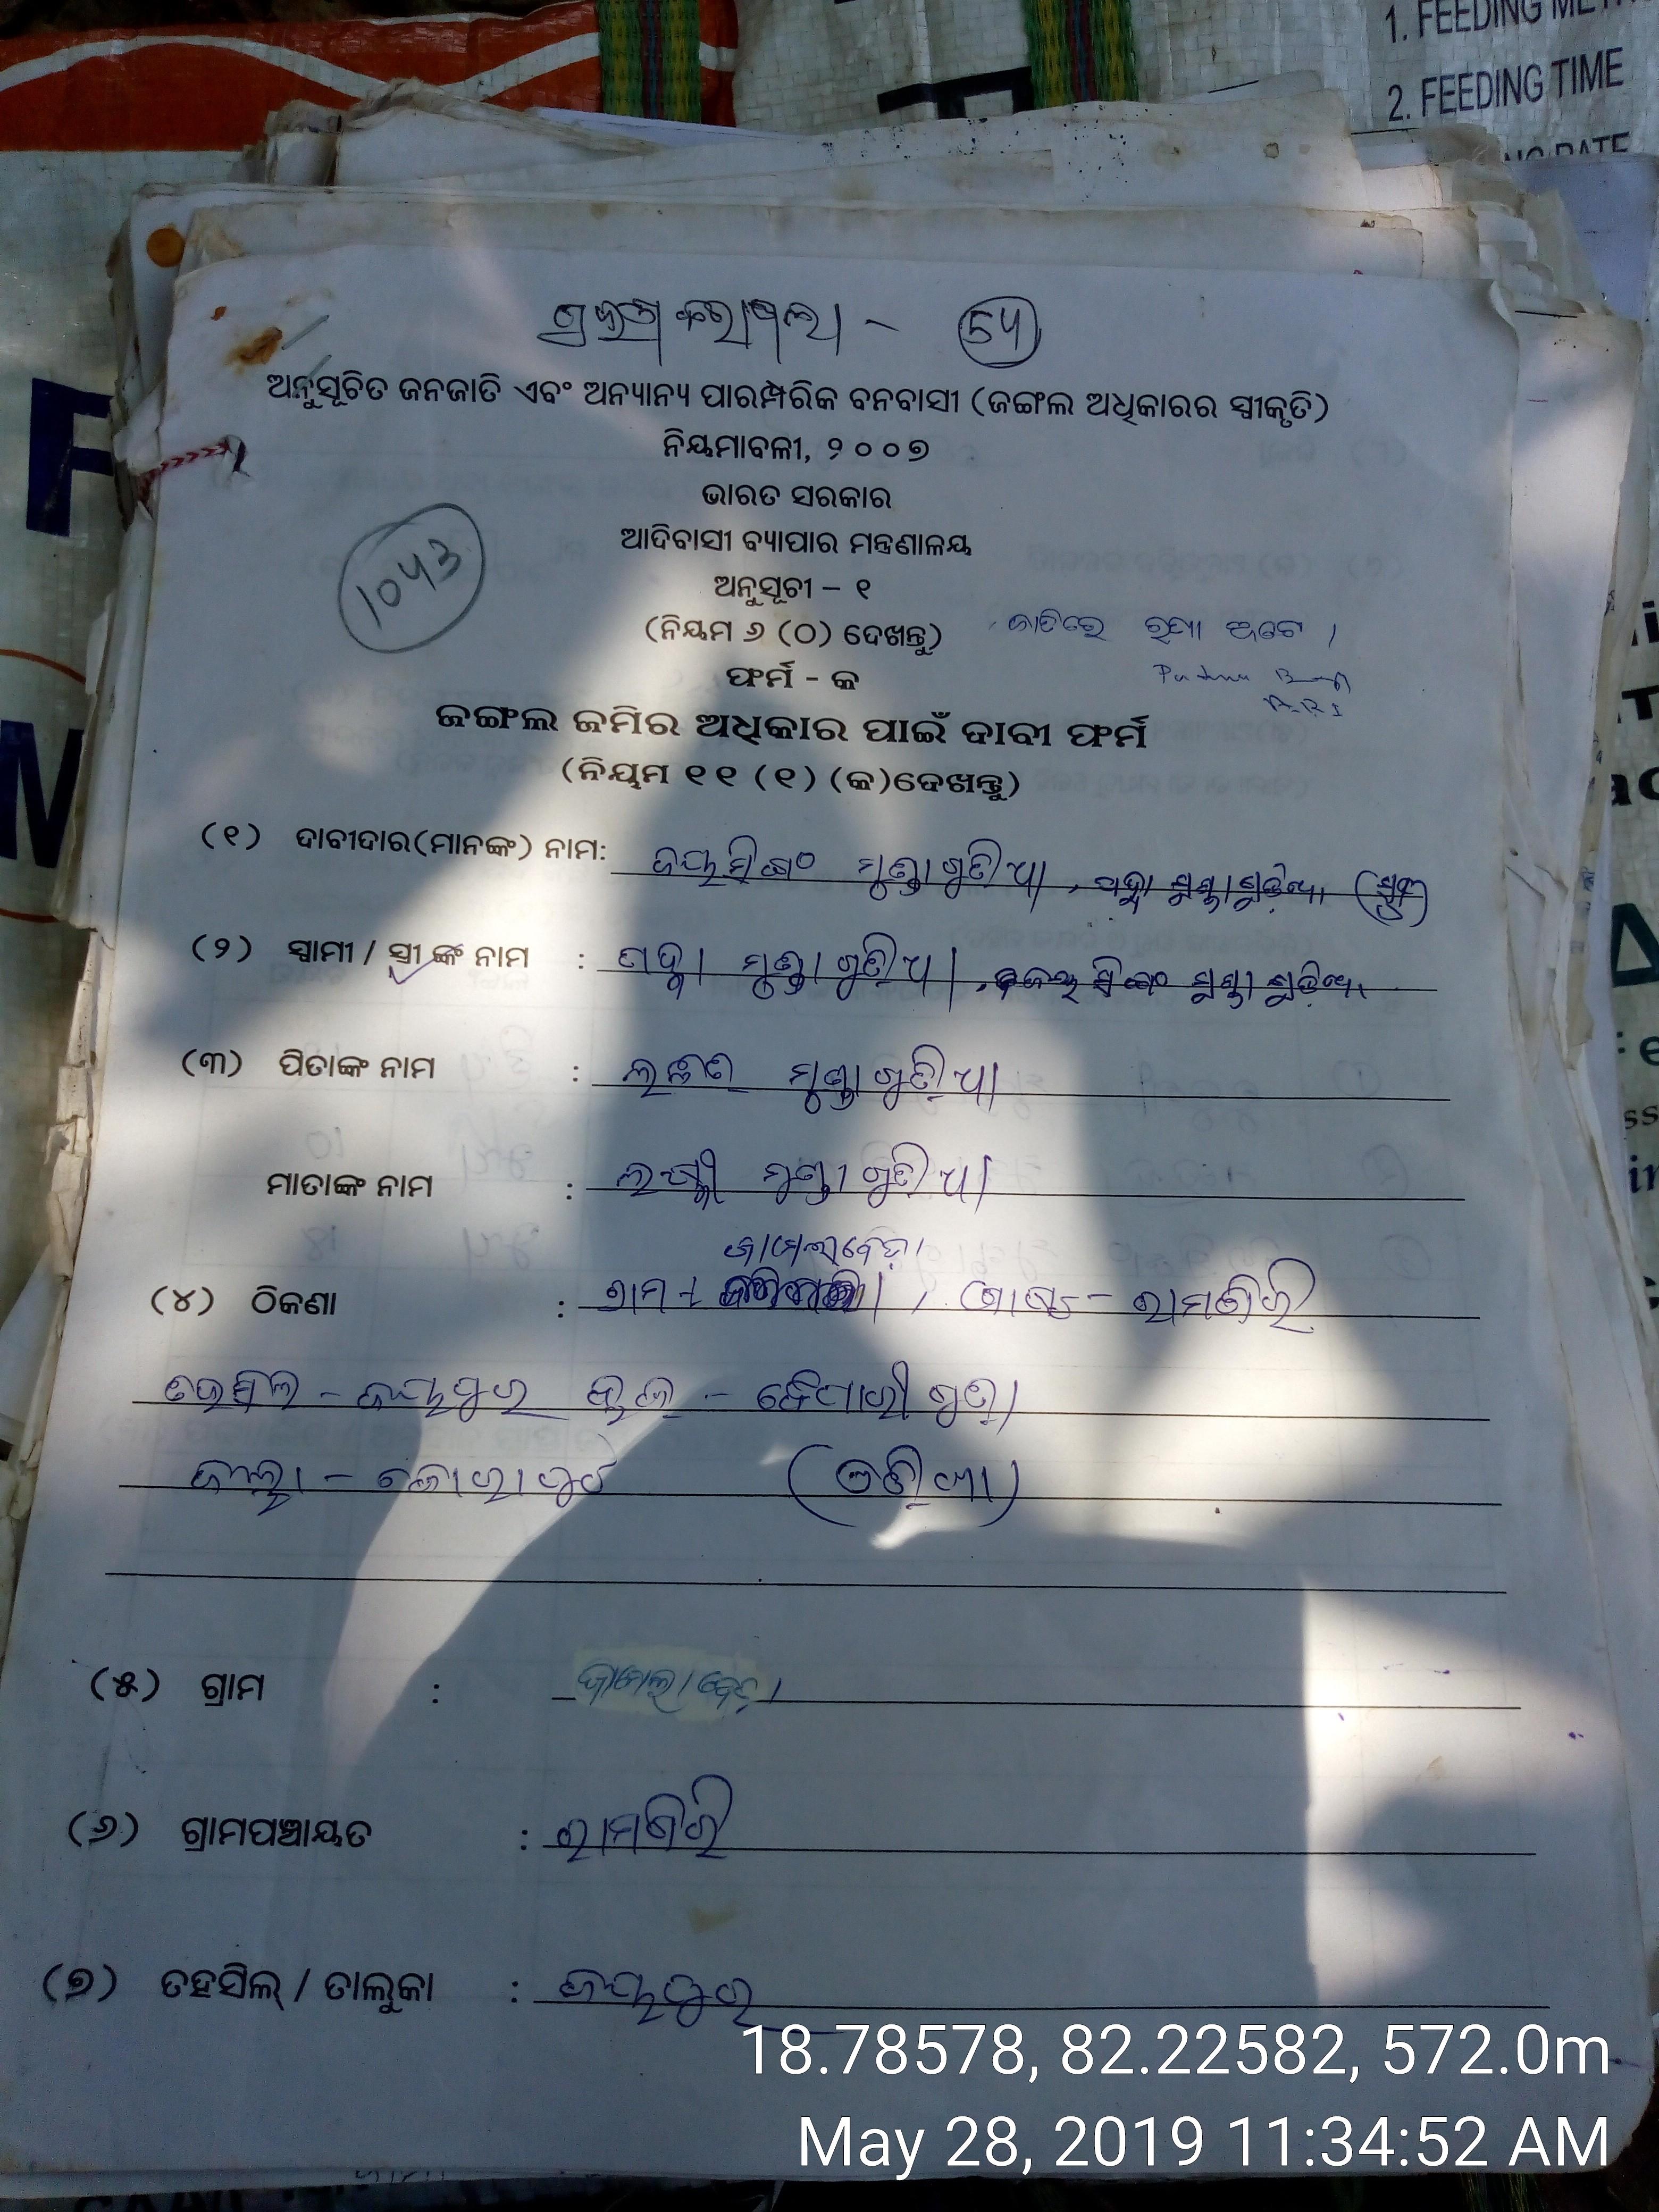 1. FEEDING
2. FEEDING TIME
54
ଅନୁସୂଚିତ ଜନଜାତି ଏବଂ ଅନ୍ୟାନ୍ୟ ପାରମ୍ପରିକ ବନବାସୀ (ଜଙ୍ଗଲ ଅଧିକାରର ସ୍ୱୀକୃତି)
ନିୟମାବଳୀ, ୨୦୦୭
ଭାରତ ସରକାର
ଆଦିବାସୀ ବ୍ୟାପାର ମନ୍ତ୍ରଣାଳୟ
1043
ଅନୁସୂଚୀ – ୧
(ନିୟମ ୬ (ଠ) ଦେଖନ୍ତୁ) ଜାତିରେ ଅଟେ ।
ଫର୍ମ - କ
ଜଙ୍ଗଲ ଜମିର ଅଧିକାର ପାଇଁ ଦାବୀ ଫର୍ମ
(ନିୟମ ୧୧ (୧) (କ)ଦେଖନ୍ତୁ)
(୧) ଦାବୀଦାର(ମାନଙ୍କ) ନାମ: ଜୟସିଂ ମୁଣ୍ଡାଗୁଡିଆ, ପଦ୍ମା ମୁଣ୍ଡାଗୁଡ଼ିଆ (ସ୍ତ୍ରୀ)
(୨) ସ୍ୱାମୀ / ସ୍ତ୍ରୀ ଙ୍କ ନାମ : ପଦ୍ମା ମୁଣ୍ଡାଗୁଡ଼ିଆ, ମୁଣ୍ଡାଗୁଡ଼ିଆ
(୩) ପିତାଙ୍କ ନାମ : ଲଛମଣ ମୁଣ୍ଡାଗୁଡ଼ିଆ
ମାତାଙ୍କ ନାମ : ଲକ୍ଷ୍ମୀ ମୁଣ୍ଡାଗୁଡ଼ିଆ
(୪) ଠିକଣା : ଗ୍ରାମ - , ପୋଷ୍ଟ - ରାମଗିରି
ତହସିଲ - ଜୟପୁର ବ୍ଲକ - ବୈପାରୀଗୁଡ଼ା
ଜିଲ୍ଲା - କୋରାପୁଟ (ଓଡ଼ିଶା)
(୫) ଗ୍ରାମ :
(୬) ଗ୍ରାମପଞ୍ଚାୟତ : ରାମଗିରି
(୭) ତହସିଲ୍ / ତାଲୁକା : ଜୟପୁର
18.78578, 82.22582, 572.0m
May 28, 2019 11:34:52 AM